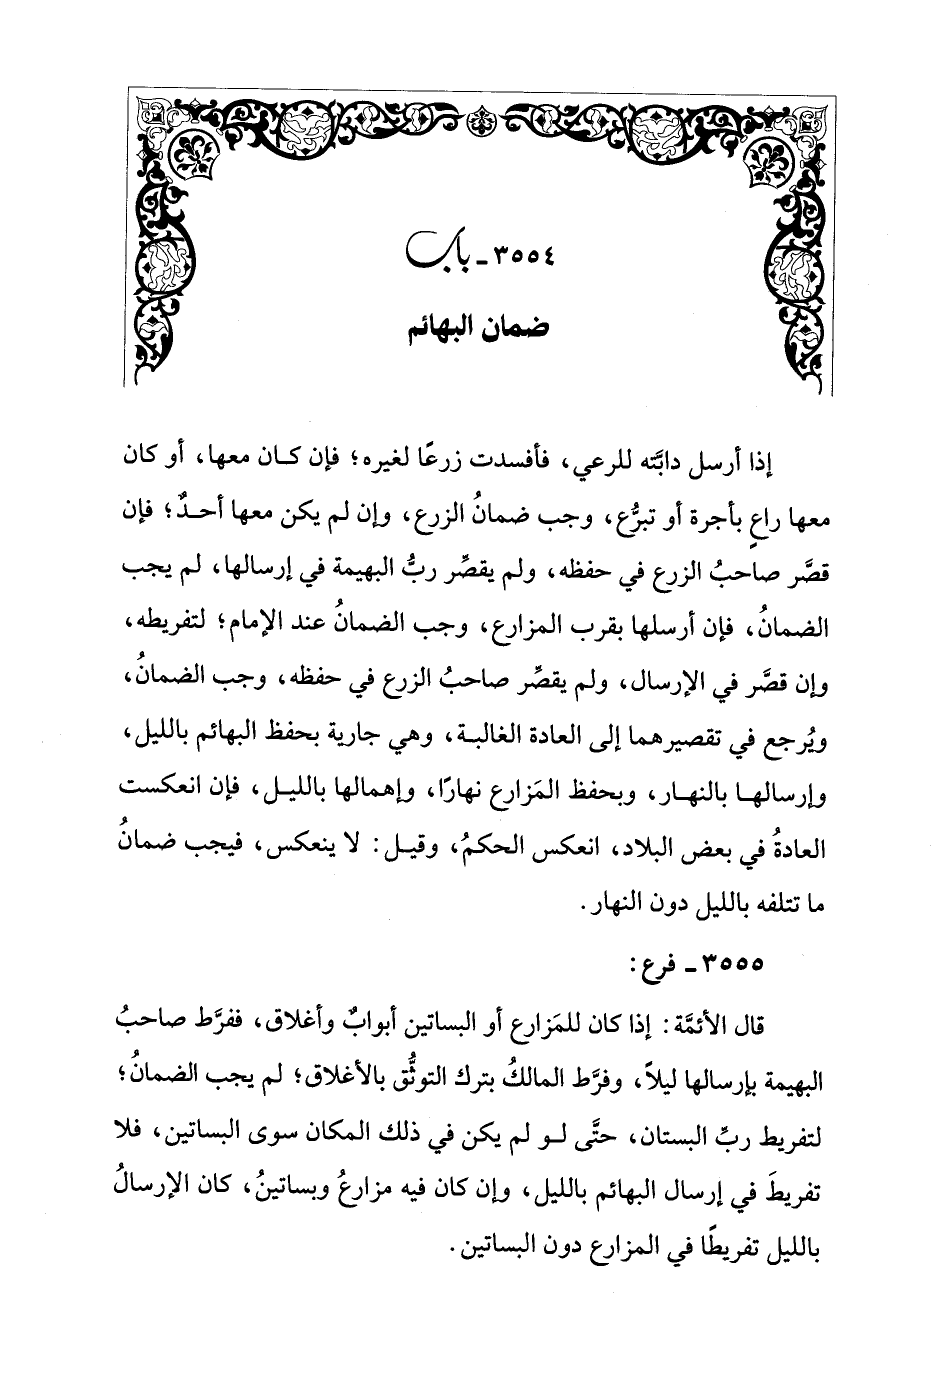 ٣٥٥٤ - باب
ضمان البهائم
إذا أرسل دابَّته للرعي، فأفسدت زرعًا لغيره؛ فإن كان معها، أو كان
معها راعٍ بأجرة أو تبرُّع، وجب ضمانُ الزرع، وإن لم يكن معها أحدٌ؛ فإن
قصَّر صاحبُ الزرع في حفظه، ولم يقصِّر ربُّ البهيمة في إرسالها، لم يجب
الضمانُ، فإن أرسلها بقرب المزارع، وجب الضمانُ عند الإمام؛ لتفريطه،
وإن قصَّر في الإرسال، ولم يقصِّر صاحبُ الزرع في حفظه، وجب الضمانُ،
ويُرجع في تقصيرهما إلى العادة الغالبة، وهي جارية بحفظ البهائم بالليل،
وإرسالها بالنهار، وبحفظ المَزارع نهارًا، وإهمالها بالليل، فإن انعكست
العادةُ في بعض البلاد، انعكس الحكمُ، وقيل: لا ينعكس، فيجب ضمانُ
ما تتلفه بالليل دون النهار.
٣٥٥٥ - فرع:
قال الأئمَّة: إذا كان للمَزارع أو البساتين أبوابٌ وأغلاق، ففرَّط صاحبُ
البهيمة بإرسالها ليلاً، وفرَّط المالكُ بترك التوثُّق بالأغلاق؛ لم يجب الضمانُ؛
لتفريط ربِّ البستان، حتَّى لو لم يكن في ذلك المكان سوى البساتين، فلا
تفريطَ في إرسال البهائم بالليل، وإن كان فيه مزارعُ وبساتينُ، كان الإرسالُ
بالليل تفريطًا في المزارع دون البساتين.